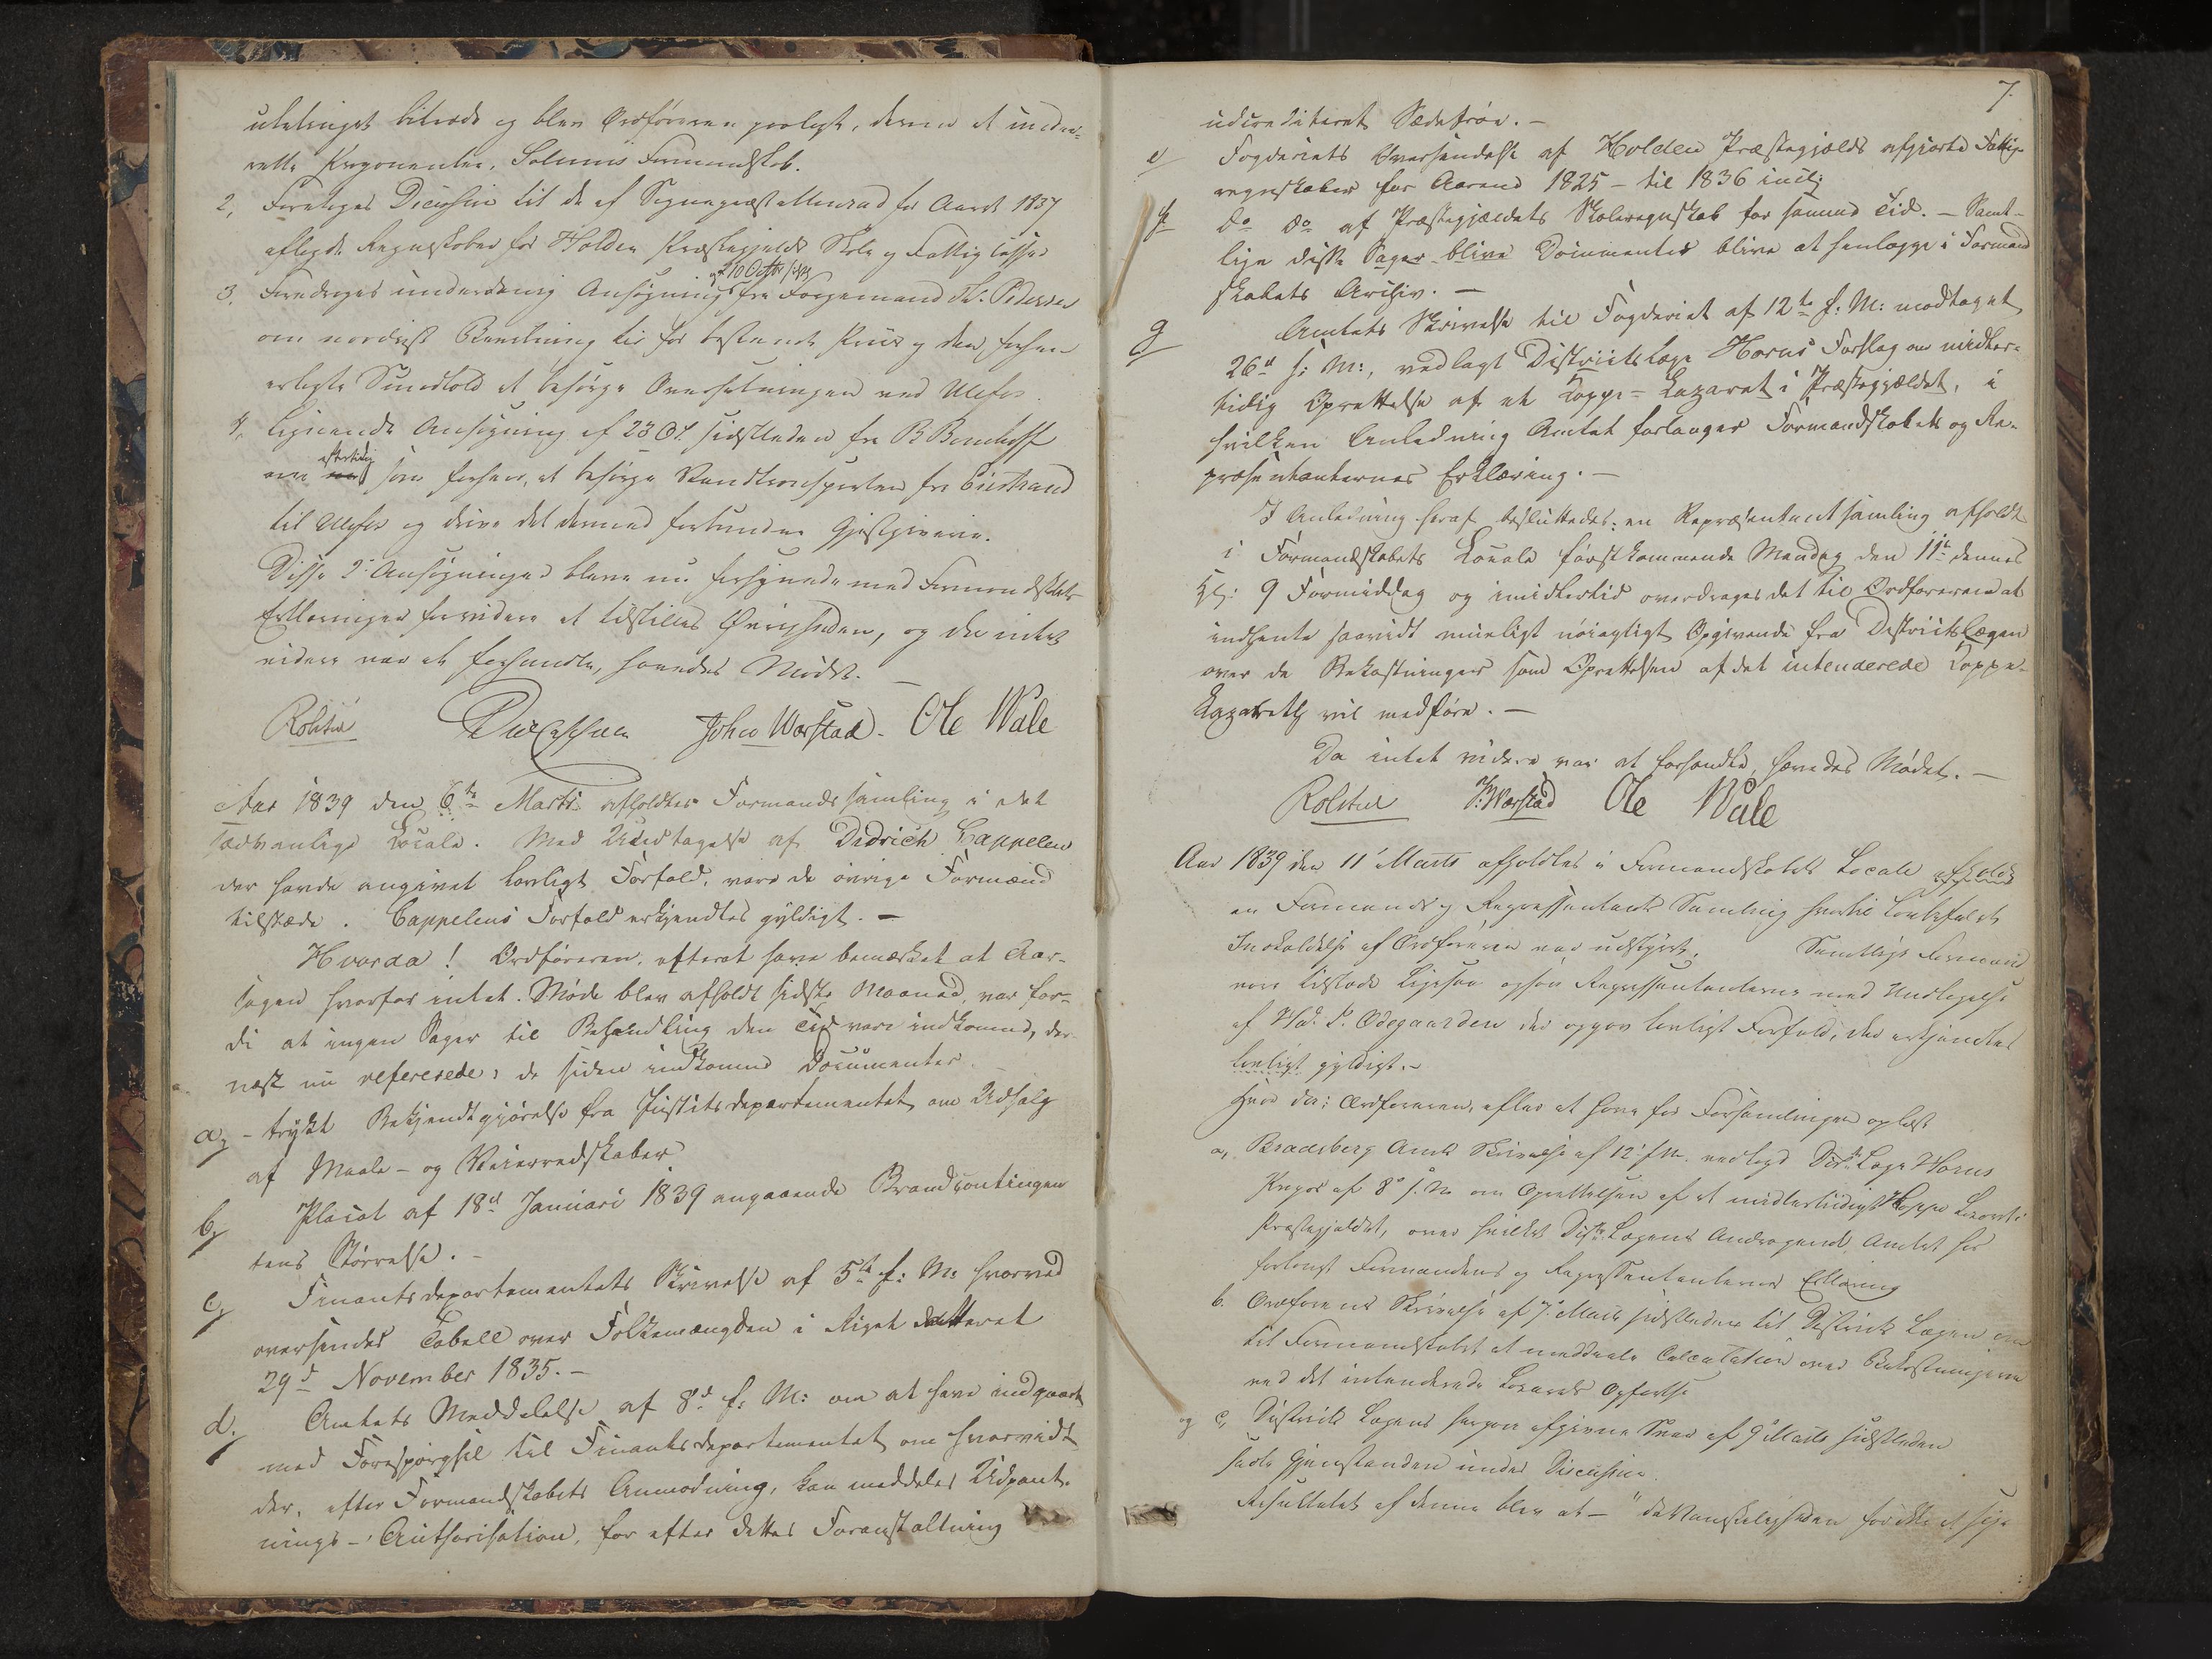 bitraadt og blev Ordføreren paalagt, derom at under-
rette Proponenten, Solums Formandskab.
2, Foretoges Discussion til de af Sognepræst for Aaret 1837
aflagte Regnskaber for Holden Præstegjelds Skole og Fattigkasser
3, Foredroges underdanig Ansøgning af 10 Octbr fra Færgemand Pedersen
om naadigst Bevilgning til for bestemt Priis og den forhen
erlagte Sundtold at besørge Oversætningen ved Ulefos.
4, Lignende Ansøgning af 23 sidstleden fra B
om eftertidig som forhen, at besørge Vandtransporten fra
til Ulefos og drive det dermed forbundne Gjæstgiverie.
Disse 2de Ansøgninger bleve nu forsynede med Formandskabets
Erklæringer for videre at tilstilles Øvrigheden, og da intet
videre var at forhandle, hævedes Mødet. —
Rolstad John Worstad. Ole Wale
Aar 1839 den 6te Marts afholdtes Formandssamling i det
sædvanlige Locale. Med Undtagelse af Didrich Cappelen
der havde angivet lovligt Forfald, vare de øvrige Formænd
tilstæde. Cappelens Forfald erkjendtes gyldigt. —
Hvorda! Ordføreren, efterat have bemærket at Aar-
sagen hvorfor intet Møde blev afholdt sidste Maaned, var for-
di at ingen Sager til Behandling den Tid vare indkomne, der-
næst nu refererede: de siden indkomne Documenter
a, - trykt Bekjendtgjørelse fra Justitsdepartementet om Udsalg
af Maale- og Veierredskaber
b, Placat af 18d Januari 1839 angaaende Brandcontingen-
tens Størrelse. -
c, Finantsdepartementets Skrivelse af 5te f: M: hvorved
oversendes Tabell over Folkemængden i Riget datteret
29d November 1835. -
d, Amtets Meddelelse af 8d f: M: om at have indgaaet
med Forespørgsel til Finantsdepartementet om hvorvidt
der, efter Formandskabets Anmodning, kan meddeles Udpant-
nings-Authorisation, for efter dettes Foranstaltning
7.
udcrediteret Sædekorn. -
e, Fogderiets Oversendelse af Holden Præstegjælds afgjorte Fattig-
regnskaber for Aarene 1825 - til 1836 incl:
f, do do af Præstegjældets Skoleregnskab for samme Tid. - Samt-
lige disse Sager blive Documenter blive at henlægge i Formand
skabets Archiv. —
g, Amtets Skrivelse til Fogderiet af 12te f: M: modtaget
26d s: M:, vedlagt Districtslæge Horns Forslag om midler-
tidig Oprettelse af et Koppe-Lazaret i Præstegjældet, i
hvilken Anledning Amtet forlanger Formandskabets og Re-
præsentanternes Erklæring. —
I Anledning heraf besluttedes: en Repræsentantsamling afholdt
i Formandskabets Locale førstkommende Mandag den 11te dennes
Kl: 9 Formiddag og imidlertid overdroges det til Ordføreren at
indhente saavidt mueligt nøiagtigt Opgivende fra Districtslægen
over de Bekostninger som Oprettelsen af det intenderede Koppe-
Lazareth vil medføre. —
Da intet videre var at forhandle, hævedes Mødet. —
Rolstad J: Worstad Ole Wale
Aar 1839 den 11 Marts afholdtes i Formandskabets Locale afholdt
en Formands og Repræsentant Samling hvortil lovbefalet
Indkaldelse af Ordføreren var udstedt. Samtlige Formænd
vare tilstede ligesaa ogsaa Repræsentanterne med Undtagelse
af Odegaarden der opgav lovligt Forfald, der erkjendtes
lovligt gyldigt. -
Hvor da: Ordføreren, efter at have for Forsamlingen oplæst
a, Bradsberg Amts Skrivelse af 12 f M. vedlagd Dist: Læge Horns
af 8de s. M om Oprettelsen af et midlertidigt Koppe Lazaret i
Præstegjeldet, over hvilket Distr: Lægens Andragende Amtet har
forlangt Formandens og Repræsentanternes Erklæring
b. Ordførerens Skrivelse af 7 Marts sidstleden til District Lægen om
til Formandskabet at meddeele Calculation over Bekostningerne
ved det intenderede Lazareth Opførelse
og c, Districts Lægens herpaa afgivne Svar af 9 Marts sidstleden
satte Gjenstanden under Discusion.
Resultatet af denne blev at - "da Vanskeligheden for ikke at sige